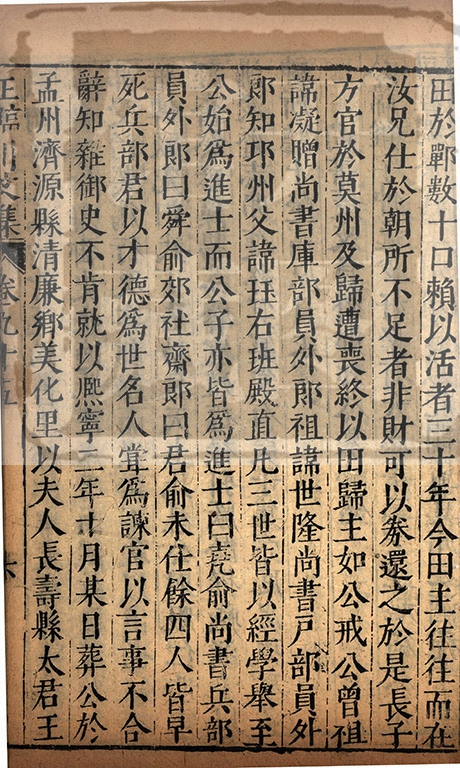 田於鄆數十口賴以活者三十年今田主往往而在
汝兄仕於朝所不足者非財可以券還之於是長子
方官於莫州及歸遭喪終以田歸主如公戒公曾祖
諱凝贈尚書庫部員外郎祖諱世隆尚書戸部員外
郎知邛州父諱珏右班殿直凡三世皆以經學舉至
公始爲進士而公子亦皆爲進士曰堯俞尚書兵部
員外郎曰舜俞郊社齋郎曰君俞未仕餘四人皆早
死兵部君以才德爲世名人甞爲諫官以言事不合
辭知雜御史不肯就以熈寧二年十月某日葬公於
孟州濟源縣清廉鄉美化里以夫人長壽縣太君王
王臨川文集 卷九十五 六